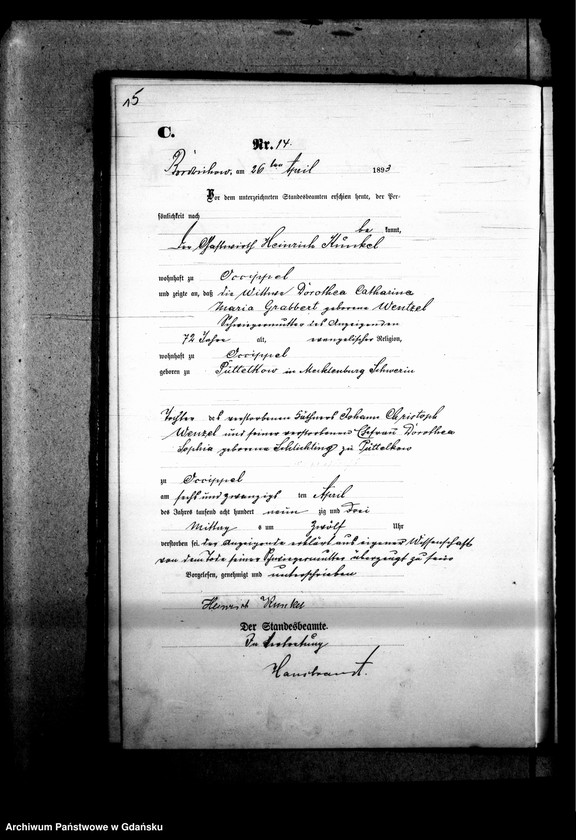 15
C.
Nr. 14.
am 26ten April 1893
Vor dem unterzeichneten Standesbeamten erschien heute, der Per-
sönlichkeit nach
be kannt,
der Gastwirth Heinrich Kunkel
wohnhaft zu Occippel
und zeigte an, daß die Wittwe Dorothea Catharina
Maria Grabbert geborene Wentzel
Schwiegermutter des Anzeigenden
72 Jahre alt, evangelischer Religion,
wohnhaft zu Occippel
geboren zu Püttelkow in Mecklenburg Schwerin
Tochter des verstorbenen Käthners Johann Christoph
Wenzel und seiner verstorbenen Ehefrau Dorothea
Sophia geborene Schlichting zu Püttelkow
zu Occippel
am sechs und zwanzigs ten April
des Jahres tausend acht hundert neun zig und drei
Mittag s um zwölf Uhr
verstorben sei, der Anzeigende erklärt aus eigener Wissenschaft
von dem Tode seiner Schwiegermutter überzeugt zu sein
Vorgelesen, genehmigt und unterschrieben
Heinrich Kunkel
Der Standesbeamte.
In Vertretung
Archiwum Państwowe w Gdańsku